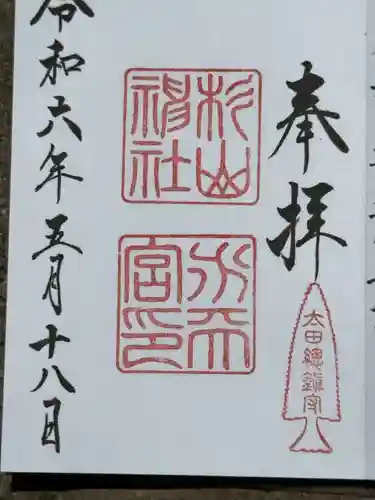 奉拝
太田總鎮守
杉山神社
水天宮印
令和六年五月十八日